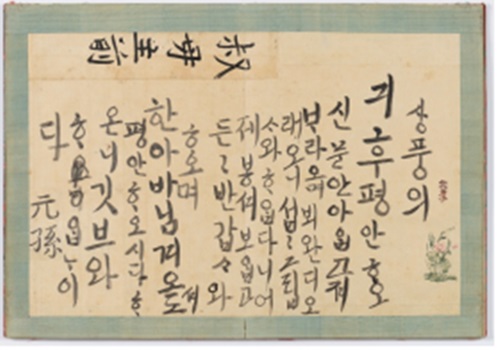 叔母主前
상풍의
긔후평안ᄒᆞ오
신문안아ᄋᆞᆸ고져
ᄇᆞ라오며뵈완디오
래오니섭〃그립
ᄉᆞ와ᄒᆞᄋᆞᆸ다니어
제봉셔보ᄋᆞᆸ고
든〃반갑ᄉᆞ와
ᄒᆞ오며
한아바님겨오셔도
평안ᄒᆞ오시다ᄒᆞ
온니깃브와
ᄒᆞᄋᆞᆸᄂᆞ이
다
元孫